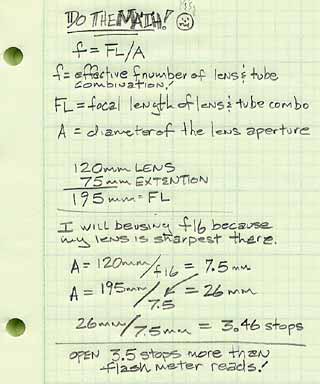 DO THE MATH!
f = FL/A
f = effective f number of lens & tube
combination!
FL = focal length of lens & tube combo
A = diameter of the lens aperture
120mm LENS
75mm EXTENTION
195mm = FL
I will be using f16 because
my lens is sharpest there.
A = 120mm/f16 = 7.5mm
A = 195mm/7.5 = 26mm
26mm/7.5mm = 3.46 stops
OPEN 3.5 stops more than
flash meter reads!